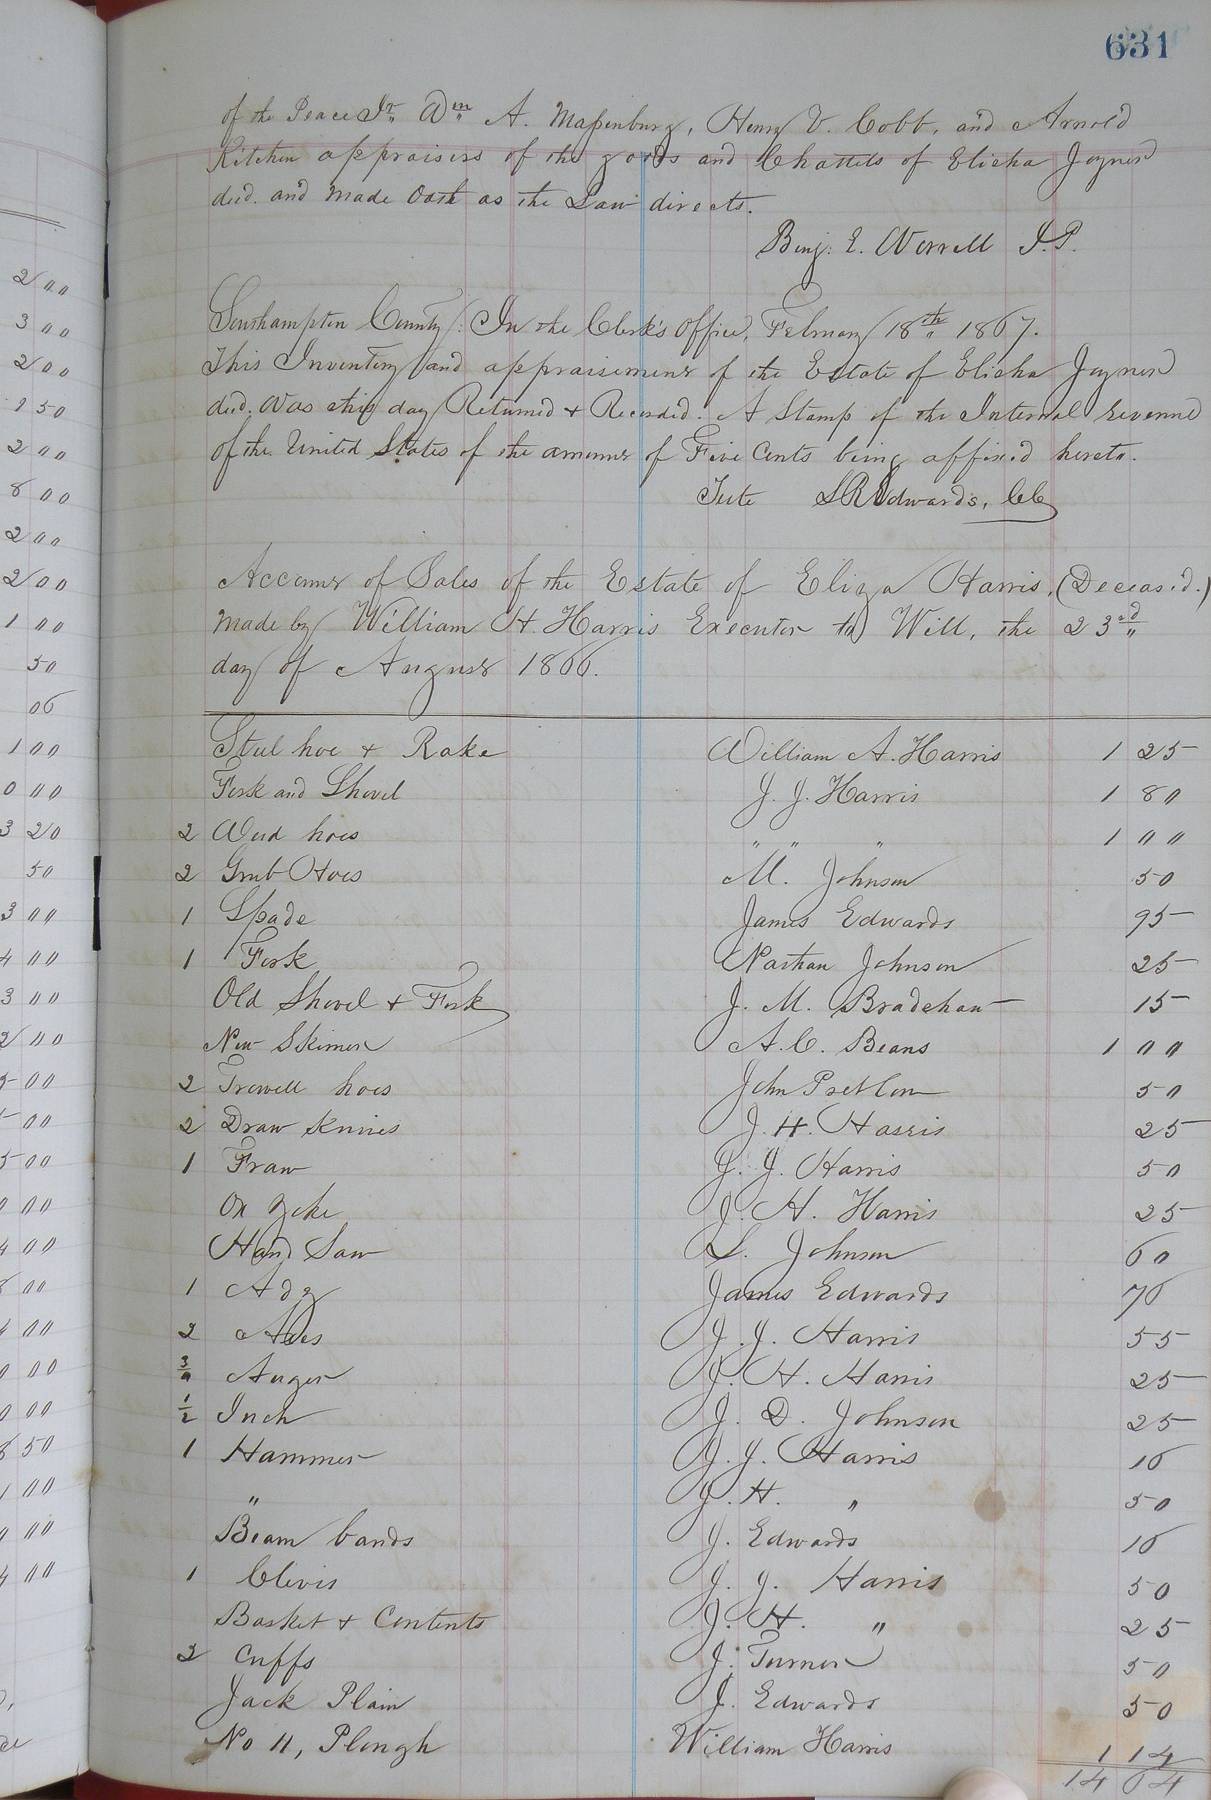 631
of the Peace Jr. Wm A. Massenburg, Henry V. Cobb, and Arnold
Kitchen appraisers of the goods and Chattels of Elisha Joyner
decd. and made Oath as the Law directs.
Benj. E. Worrell J.P.
Southampton County: In the Clerk's Office, February 18th 1867.
This Inventory and appraisement of the Estate of Elisha Joyner
decd. was this day Returned & Recorded. A Stamp of the Internal Revenue
of the United States of the amount of Five Cents being affixed hereto.
Teste LR Edwards, CC
Account of Sales of the Estate of Eliza Harris, (Deceas.d.)
made by William H. Harris Executor to Will, the 23rd
day of August 1866.
Steel hoe & Rake William A. Harris 1 25
Fork and Shovel J. J. Harris 1 80
2 Weed hoes " " " 1 00
2 Grub Hoes M. Johnson 50
1 Spade James Edwards 95
1 Fork Nathan Johnson 25
Old Shovel & Fork J. M. Bradshaw 15
New Skimer A. C. Beans 1 00
2 Trowell hoes John Pretlow 50
2 Draw Knives J. H. Harris 25
1 Fraw J. J. Harris 50
Ox Yoke J. H. Harris 25
Hand Saw S. Johnson 60
1 Adz James Edwards 76
2 Axes J. J. Harris 55
Auger J. H. Harris 25
1/2 Inch J. D. Johnson 25
1 Hammer J. J. Harris 16
" J. H. " 50
Beam bands J. Edwards 16
1 Clivis J. J. Harris 50
Basket & Contents J. H. " 25
2 Cuffs J. Turner 50
Jack Plain J. Edwards 50
No 11, Plough William Harris 1 14
14 64
2 00
3 00
2 00
1 50
2 00
8 00
2 00
2 00
1 00
50
06
1 00
0 00
3 20
50
3 00
4 00
3 00
2 00
5 00
00
5 00
0 00
4 00
00
4 00
0 00
0 00
50
00
00
4 00